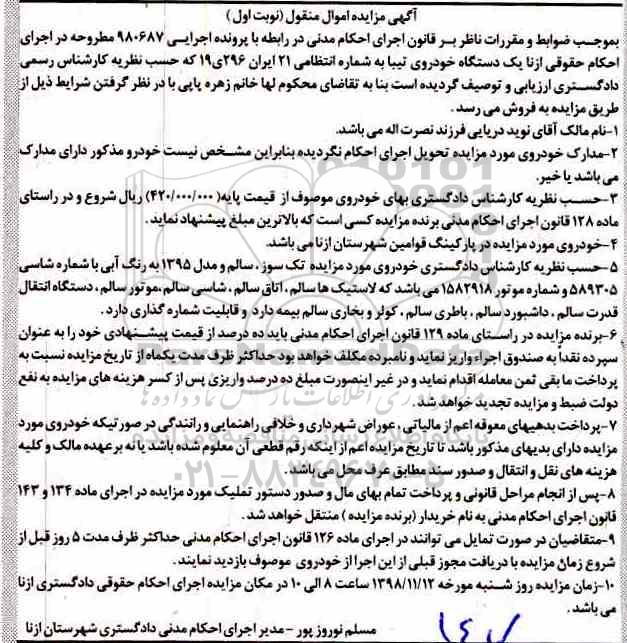 آگهی مزایده اموال منقول (نوبت اول)
بموجب ضوابط و مقررات ناظر بر قانون اجرای احکام مدنی در رابطه با پرونده اجرایی ۹۸۰۶۸۷ مطروحه در اجرای
احکام حقوقی ازنا یک دستگاه خودروی تیبا به شماره انتظامی ۲۱ ایران ۲۹۶ی۱۹ که حسب نظریه کارشناس رسمی
دادگستری ارزیابی و توصیف گردیده است بنا به تقاضای محکوم لها خانم زهره پاپی با در نظر گرفتن شرایط ذیل از
طریق مزایده به فروش می رسد .
۱-نام مالک آقای نوید دریایی فرزند نصرت اله می باشد.
۲-مدارک خودروی مورد مزایده تحویل اجرای احکام نگردیده بنابراین مشخص نیست خودرو مذکور دارای مدارک
می باشد یا خیر.
۳-حسب نظریه کارشناس دادگستری بهای خودروی موصوف از قیمت پایه( ۴۲۰/۰۰۰/۰۰۰) ریال شروع و در راستای
ماده ۱۲۸ قانون اجرای احکام مدنی برنده مزایده کسی است که بالاترین مبلغ پیشنهاد نماید .
۴-خودروی مورد مزایده در پارکینگ قوامین شهرستان ازنا می باشد.
۵-حسب نظریه کارشناس دادگستری خودروی مورد مزایده تک سوز ، سالم و مدل ۱۳۹۵ به رنگ آبی با شماره شاسی
۵۸۹۳۰۵ و شماره موتور ۱۵۸۲۹۱۸ می باشد که لاستیک ها سالم ، اتاق سالم ، شاسی سالم ،موتور سالم ، دستگاه انتقال
قدرت سالم ، داشبورد سالم ، باطری سالم ، کولر و بخاری سالم بیمه دارد و قابلیت شماره گذاری دارد .
۶-برنده مزایده در راستای ماده ۱۲۹ قانون اجرای احکام مدنی باید ده درصد از قیمت پیشنهادی خود را به عنوان
سپرده نقدا به صندوق اجراء واریز نماید و نامبرده مکلف خواهد بود حداکثر ظرف مدت یکماه از تاریخ مزایده نسبت به
پرداخت ما بقی ثمن معامله اقدام نماید و در غیر اینصورت مبلغ ده درصد واریزی پس از کسر هزینه های مزایده به نفع
دولت ضبط و مزایده تجدید خواهد شد.
۷-پرداخت بدهیهای معوقه اعم از مالیاتی ، عوارض شهرداری و خلافی راهنمایی و رانندگی در صورتیکه خودروی مورد
مزایده دارای بدیهای مذکور باشد تا تاریخ مزایده اعم از اینکه رقم قطعی آن معلوم شده باشد یا نه بر عهده مالک و کلیه
هزینه های نقل و انتقال و صدور سند مطابق عرف محل می باشد.
۸-پس از انجام مراحل قانونی و پرداخت تمام بهای مال و صدور دستور تملیک مورد مزایده در اجرای ماده ۱۳۴ و ۱۴۳
قانون اجرای احکام مدنی به نام خریدار (برنده مزایده ) منتقل خواهد شد .
۹-متقاضیان در صورت تمایل می توانند در اجرای ماده ۱۲۶ قانون اجرای احکام مدنی حداکثر ظرف مدت ۵ روز قبل از
شروع زمان مزایده با دریافت مجوز قبلی از این اجرا از خودروی موصوف بازدید نمایند .
۱۰-زمان مزایده روز شنبه مورخه ۱۳۹۸/۱۱/۱۲ ساعت ۸ الی ۱۰ در مکان مزایده اجرای احکام حقوقی دادگستری ازنا
می باشد .
مسلم نوروز پور -مدیر اجرای احکام مدنی دادگستری شهرستان ازنا